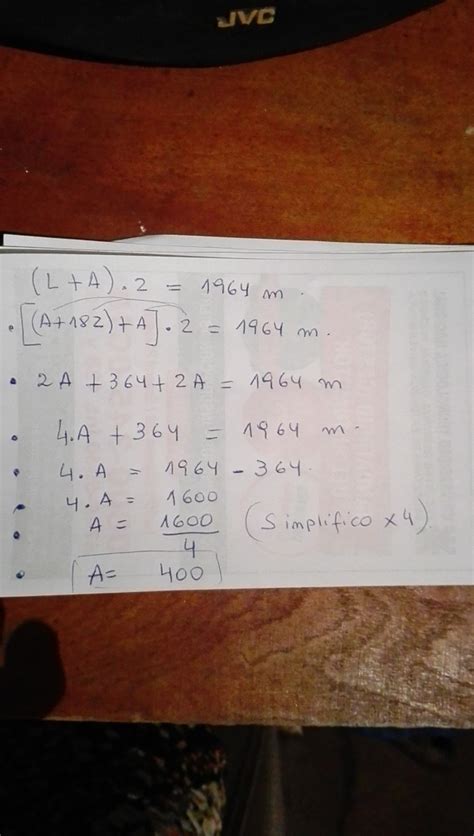 JVC
(L + A) . 2 = 1964 m.
• [(A+182)+A] . 2 = 1964 m.
• 2A + 364 + 2A = 1964 m
• 4.A + 364 = 1964 m.
• 4.A = 1964 - 364.
• 4.A = 1600
• A = 1600/4 (Simplifico x 4).
• A= 400